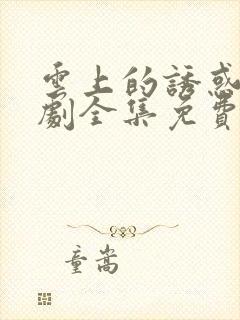 雲上的誘惑
劇全集免費
童嵩